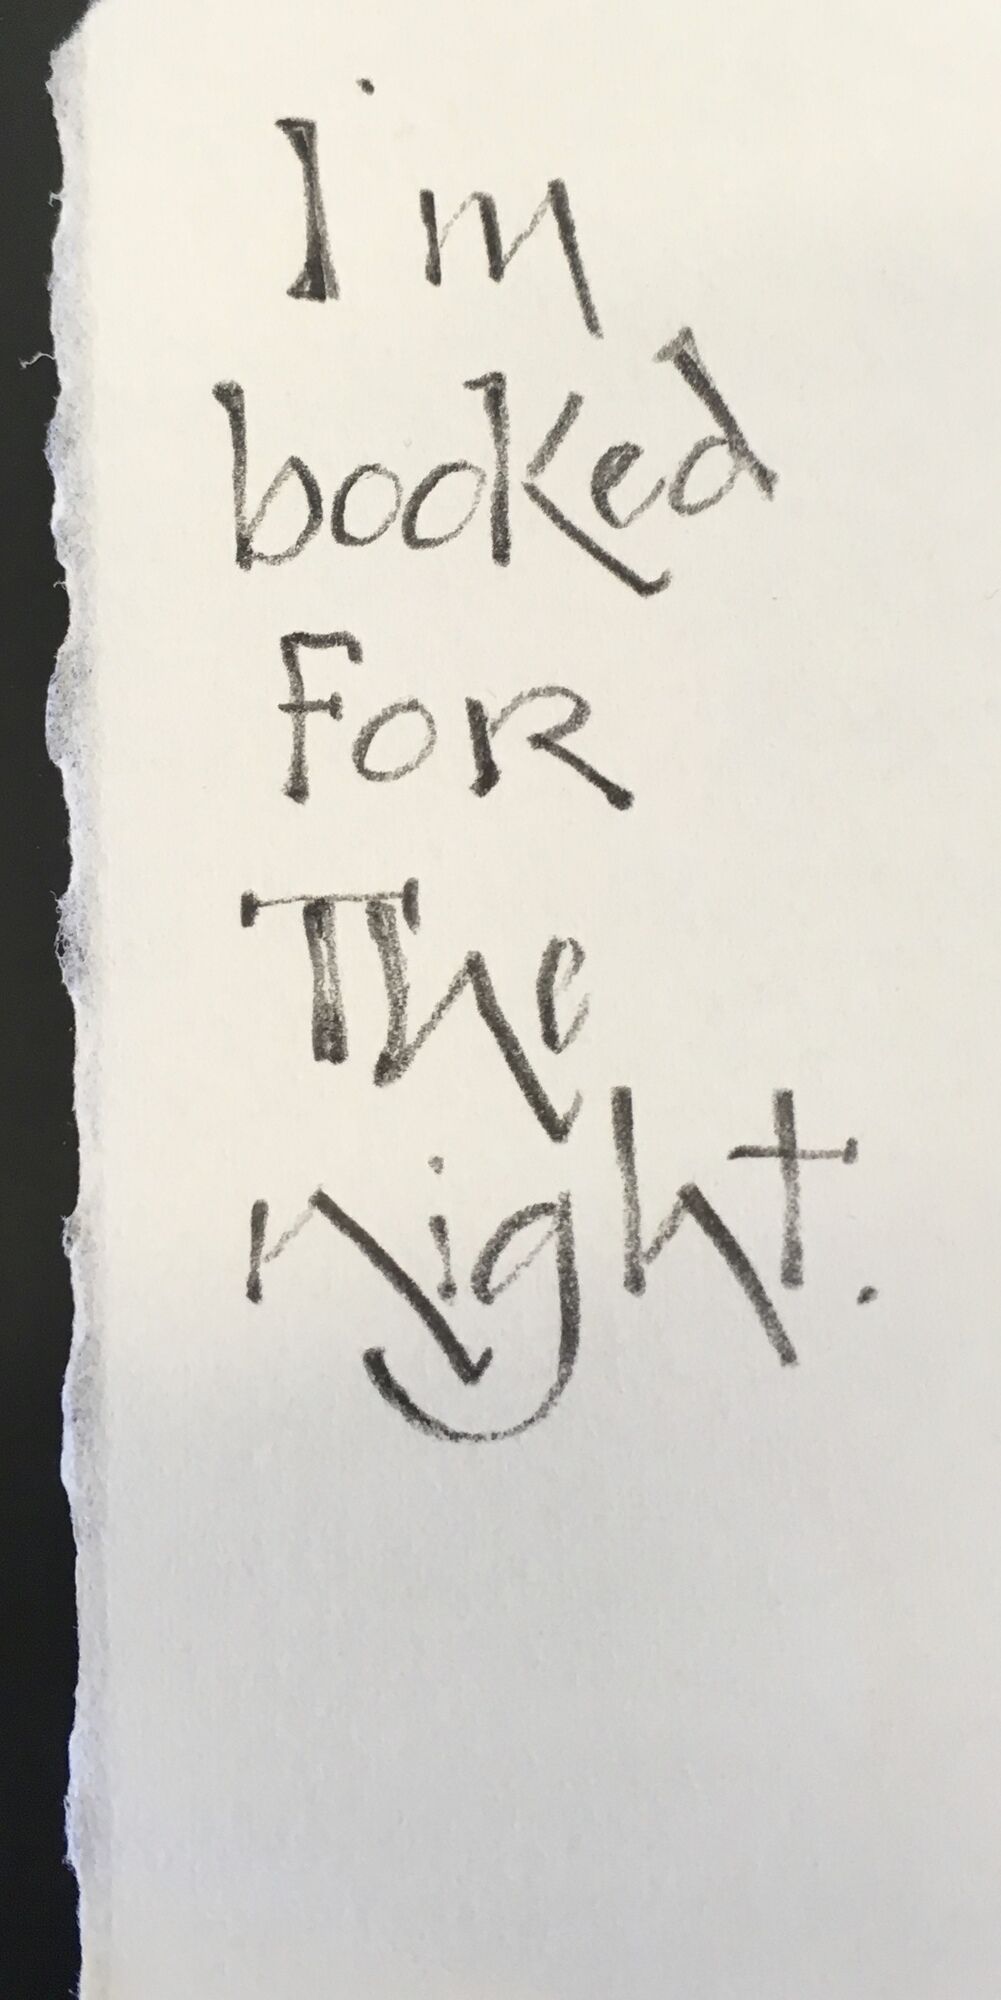 I'm
booked
For
The
night.